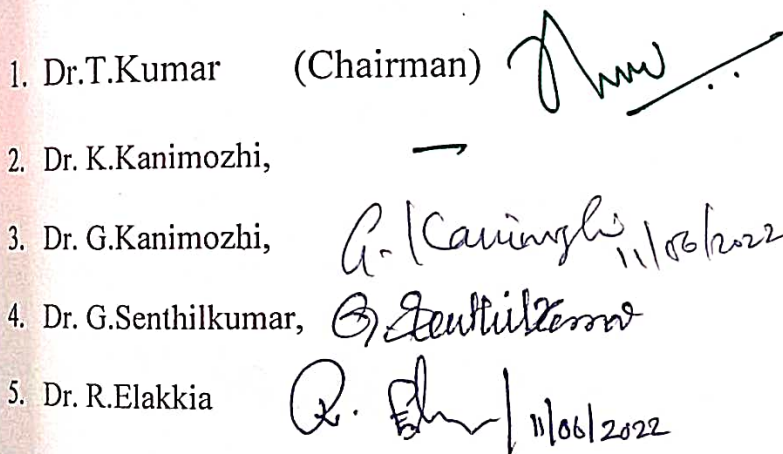 1. Dr.T.Kumar (Chairman)
2. Dr. K.Kanimozhi, —
3. Dr. G.Kanimozhi, G. Kanimozhi 11/06/2022
4. Dr. G.Senthilkumar, G. Senthilkumar
5. Dr. R.Elakkia R. 11/06/2022